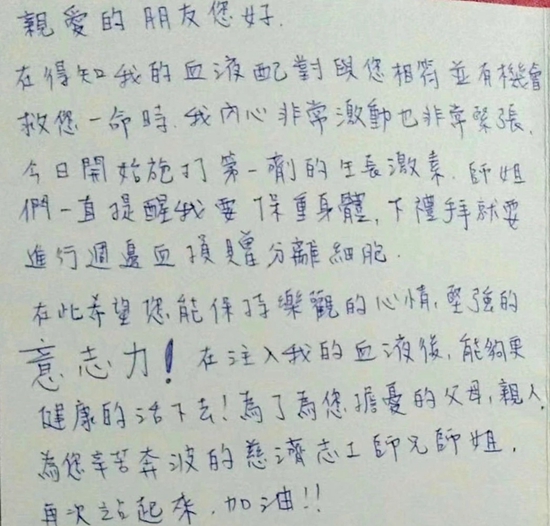 親愛的朋友您好.
在得知我的血液配對與您相符並有機會
救您一命時.我內心非常激動也非常緊張.
今日開始施打第一劑的生長激素.師姐
們一直提醒我要保重身體,下禮拜就要
進行週邊血捐贈分離細胞.
在此希望您能保持樂觀的心情,堅強的
意志力!在注入我的血液後,能夠更
健康的活下去!為了為您擔憂的父母,親人,
為您辛苦奔波的慈濟志工師兄師姐.
再次站起來.加油!!